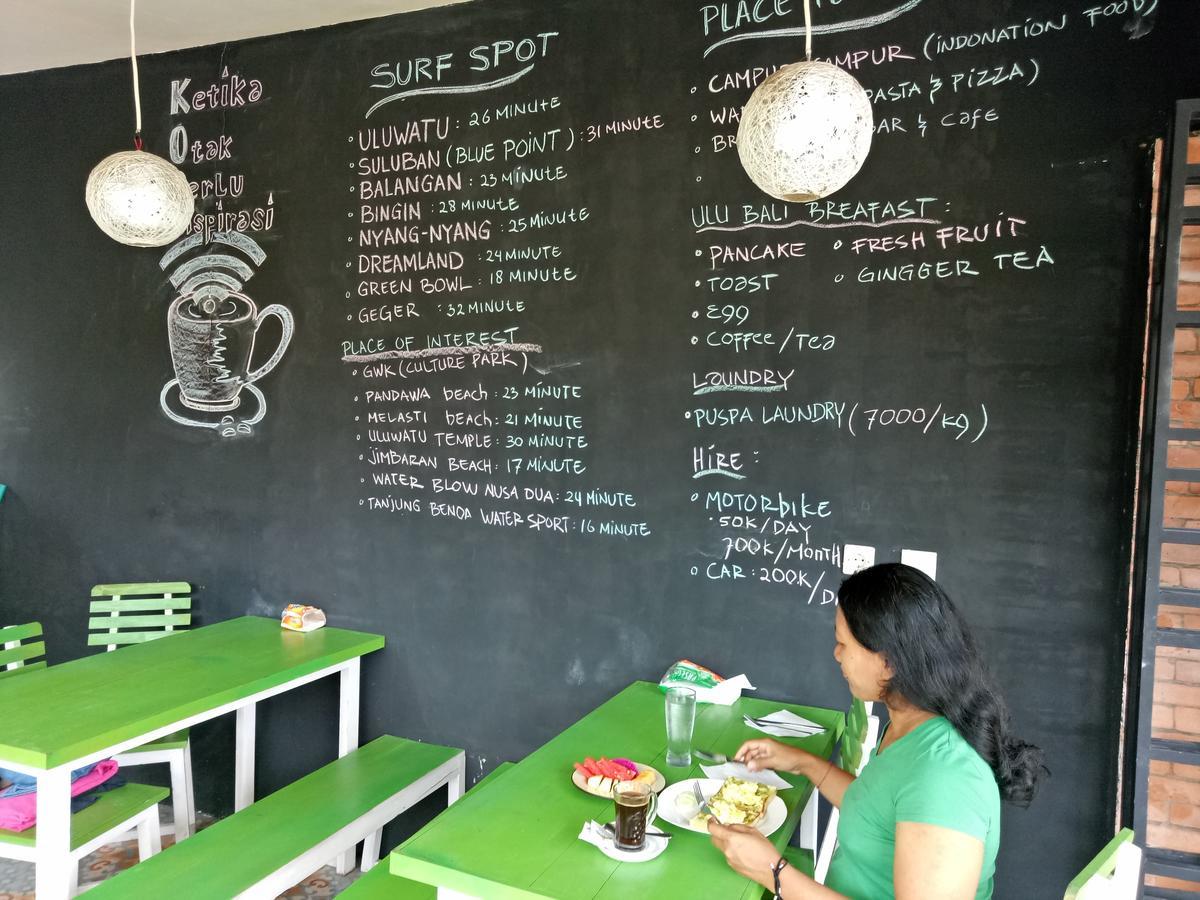 Ketika
Otak
erLu
spirasi
SURF SPOT
ULUWATU : 26 MINUtE
SULUBAN (BLUE POINT) : 31 MINUTE
BALANGAN : 23 MINUTE
BINGIN : 28 MINUTE
NYANG-NYANG : 25 MINUTE
DREAMLAND : 24 MINUTE
GREEN BOWL : 18 MINUTE
GEGER : 32 MINUTE
PLACE OF INTEREST
GWK (CULTURE PARK)
PANDAWA beach : 23 MINUTE
MELASTI beach : 21 MINUTE
ULUWATU TEMPLE : 30 MINUTE
JIMBARAN BEACH : 17 MINUTE
WATER BLOW NUSA DUA : 24 MINUTE
TANJUNG BENOA WATER SPORT : 16 MINUTE
PLACE
CAMPUR (INDONATION FOOD)
PASTA & PIZZA)
BAR & Cafe
ULU BALI BREAFAST :
PANCAKE FRESH FRUIT
TOAST GINGGER TEA
Egg
Coffee / Tea
LAUNDRY
PUSPA LAUNDRY (7000/kg)
HIRE :
MOTORbike
50K/DAY
700K/MONTH
CAR : 200K/